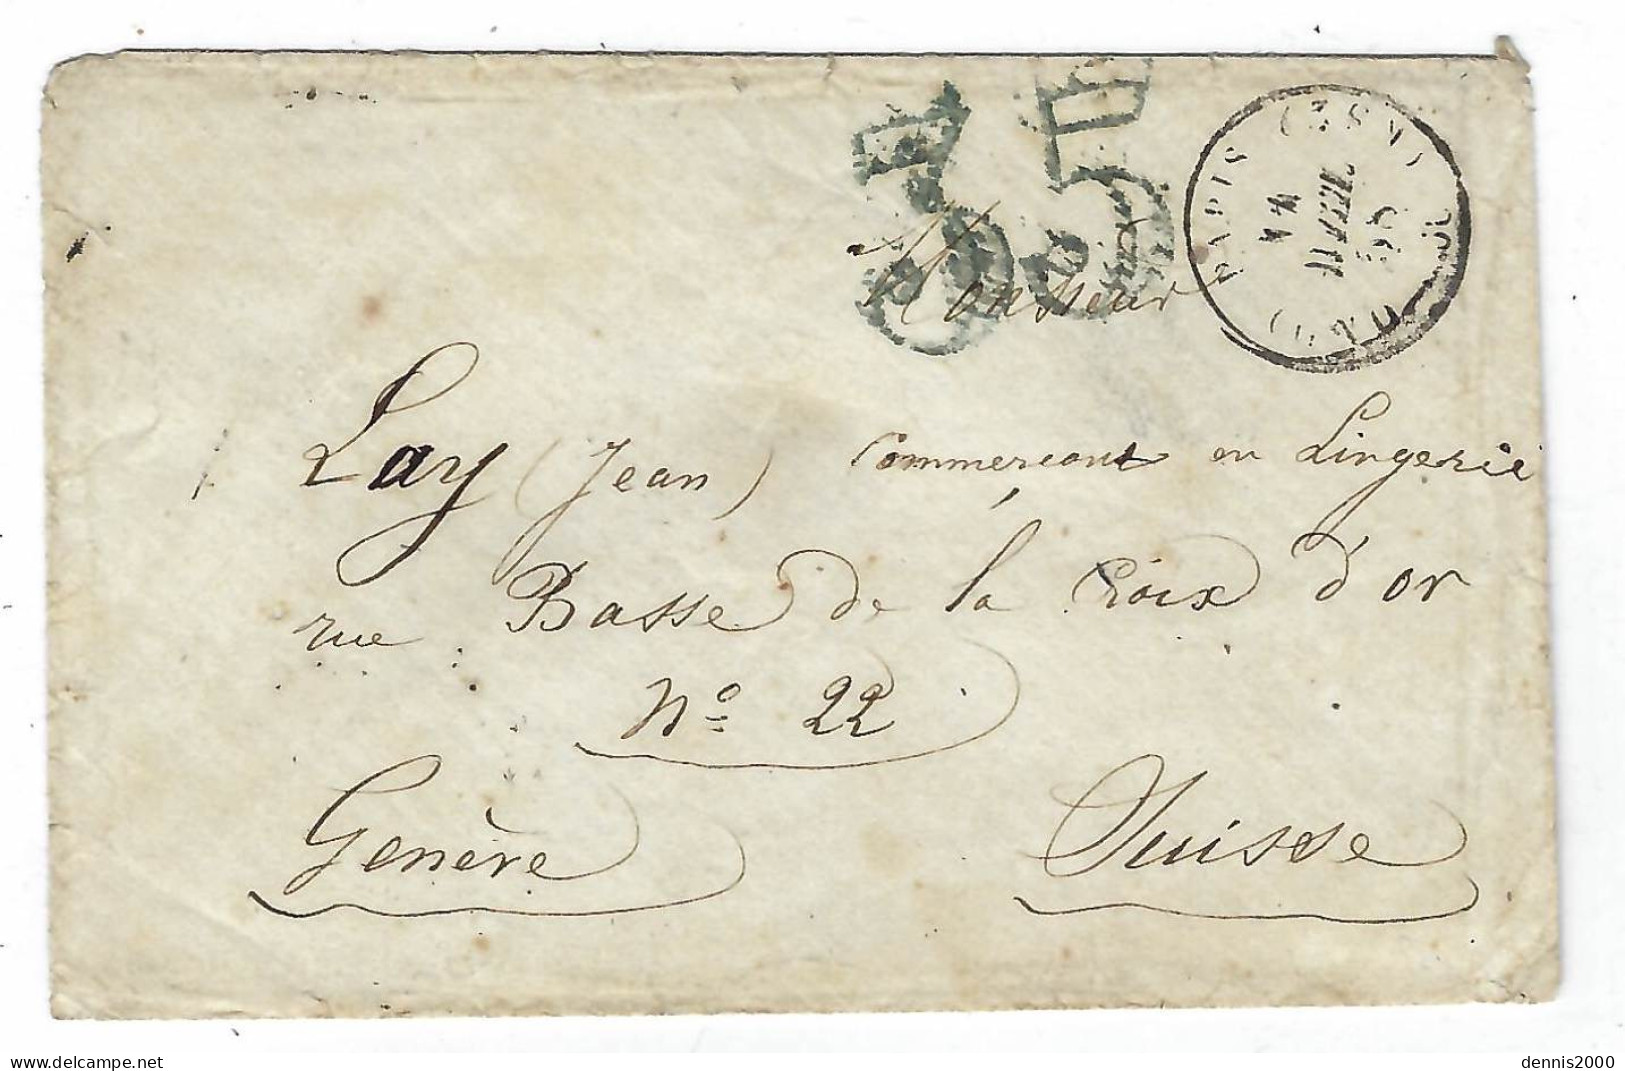 35
PARIS
Monsieur
Lay (Jean) Commerçant en Lingerie
rue Basse de la Croix d'or
Nº 22
Genève Suisse
delcampe.net
dennis2000